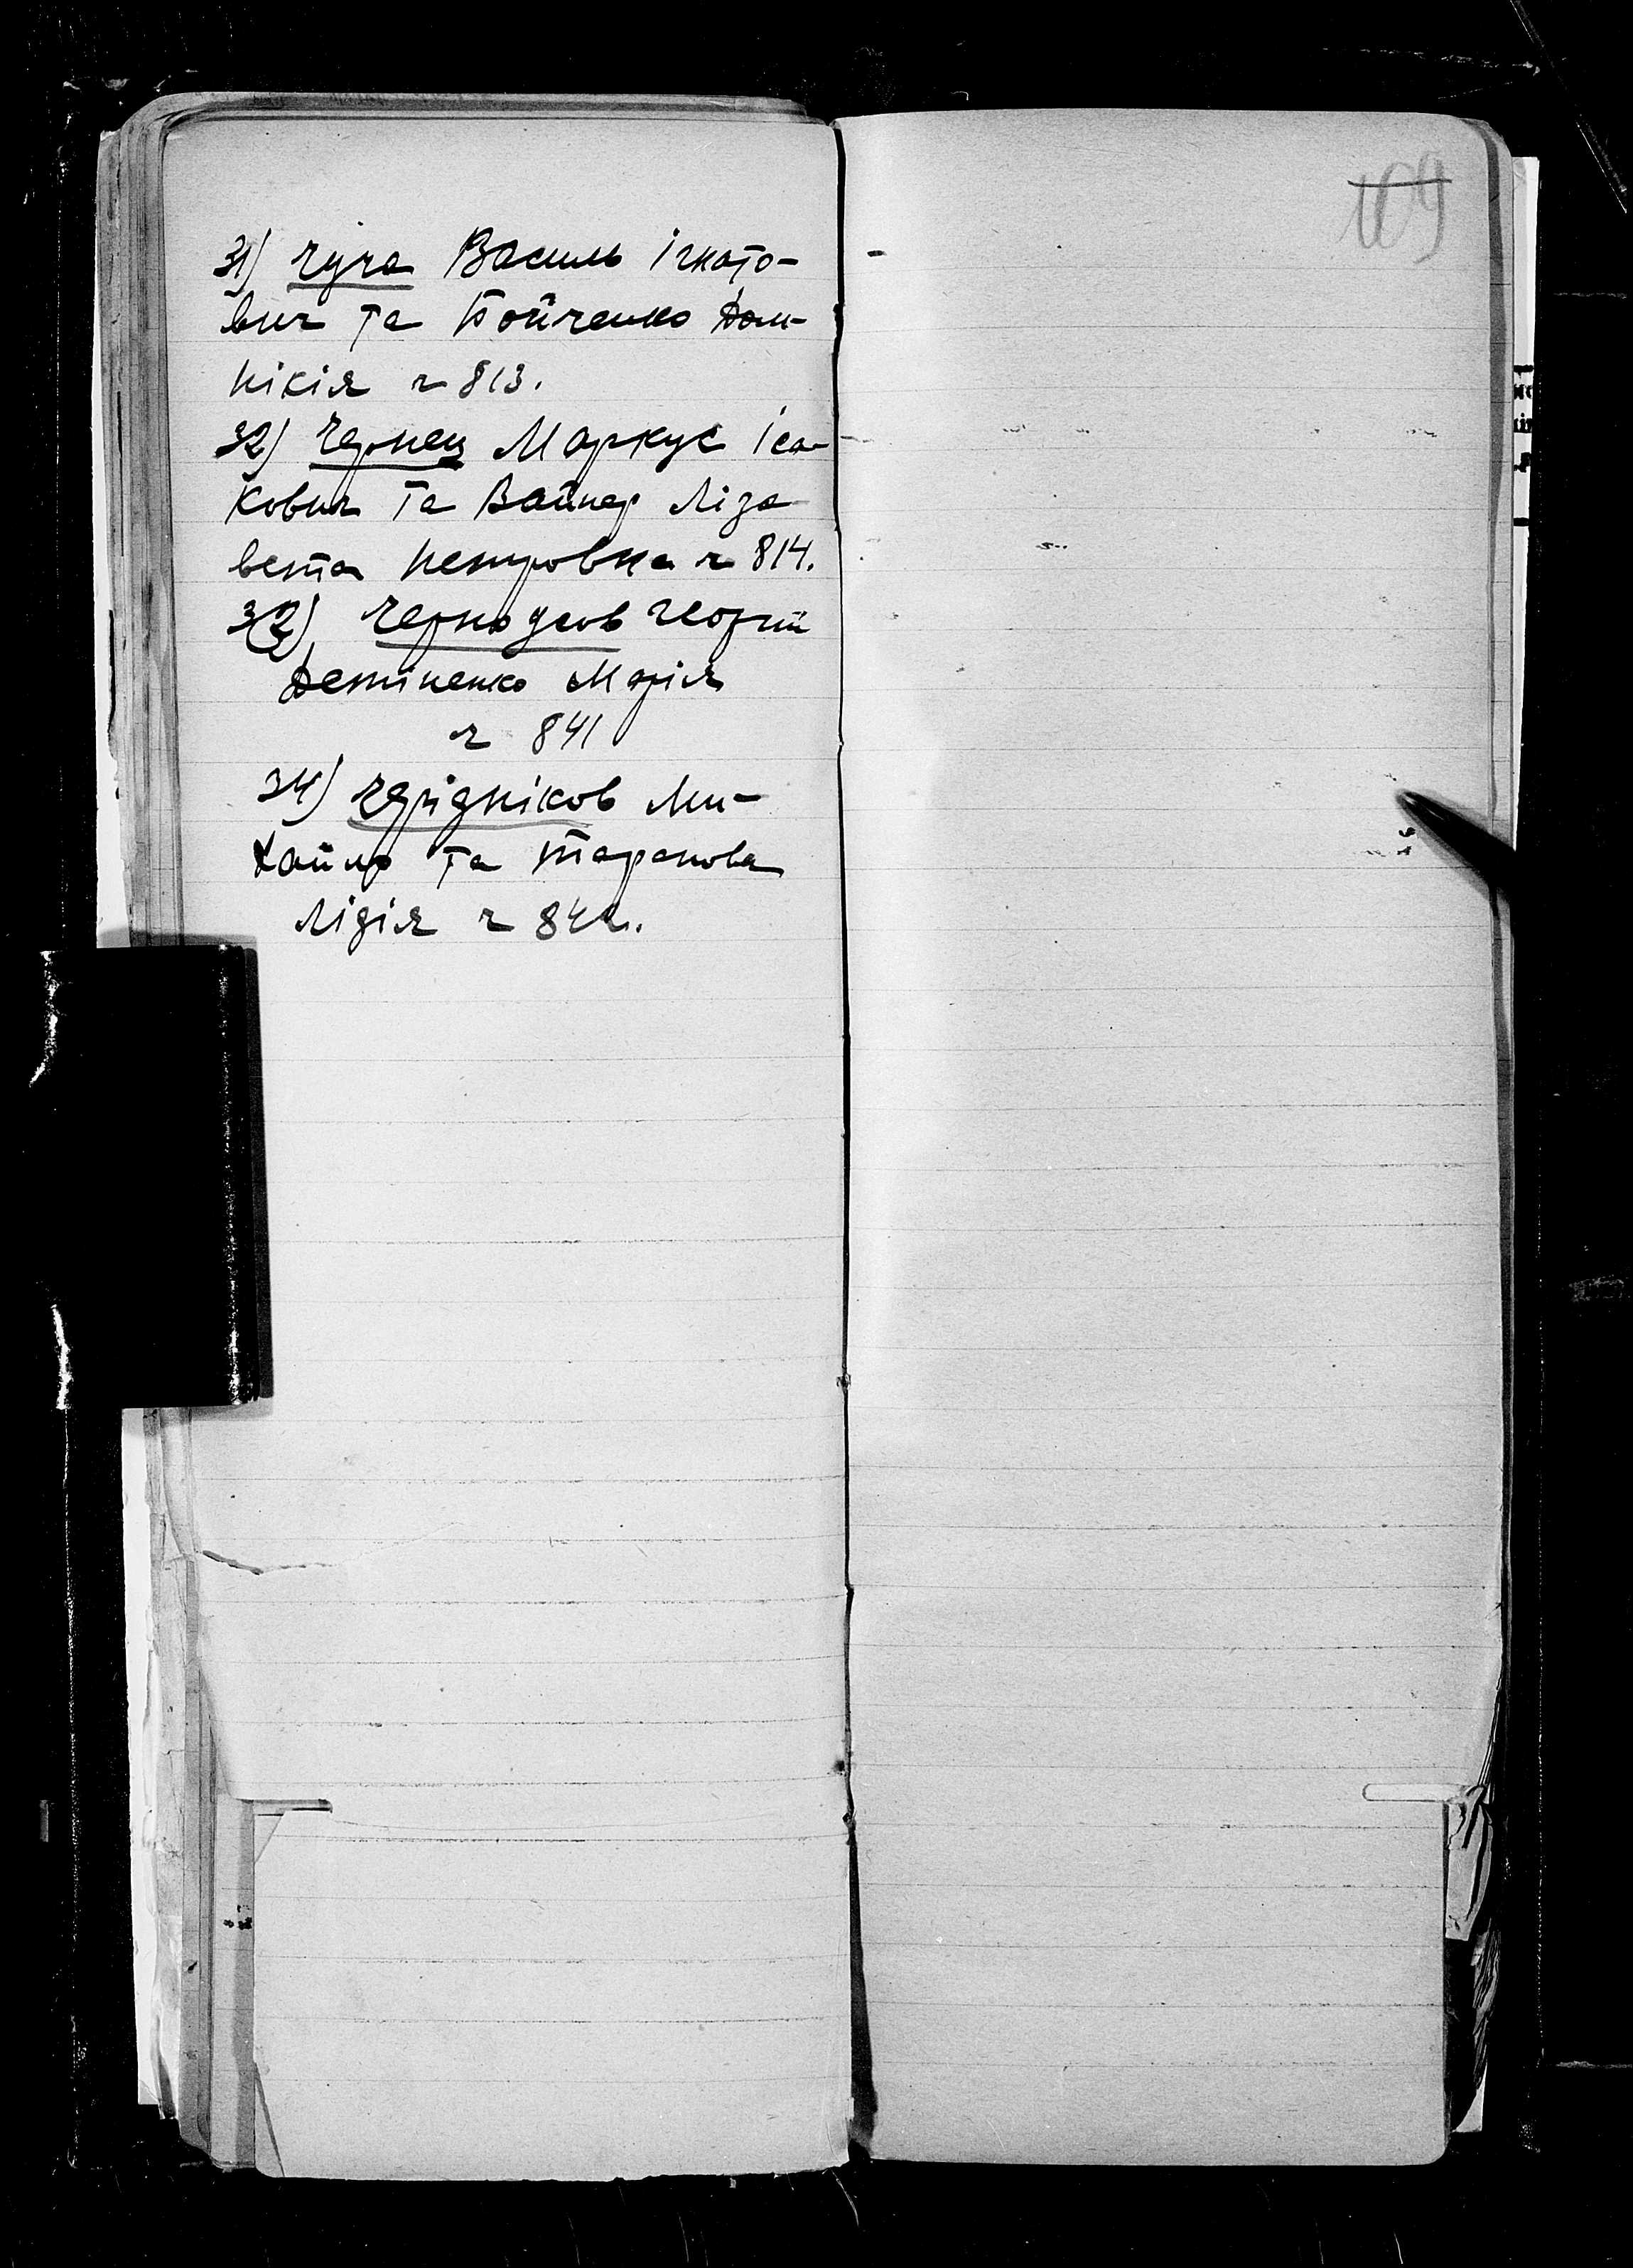 31) Чуча Василь Ігнато-
вич та Бойченко Дом-
нікія ч 813.
32) Чернец Маркус Іса-
кович та Вайнер Ліза
вета Петровна ч 814.
32) Черноусов Георгій
Деміненко Марія
ч 841
34) Чередніков Ми-
хайло та Таранова
Лідія ч 842.
109